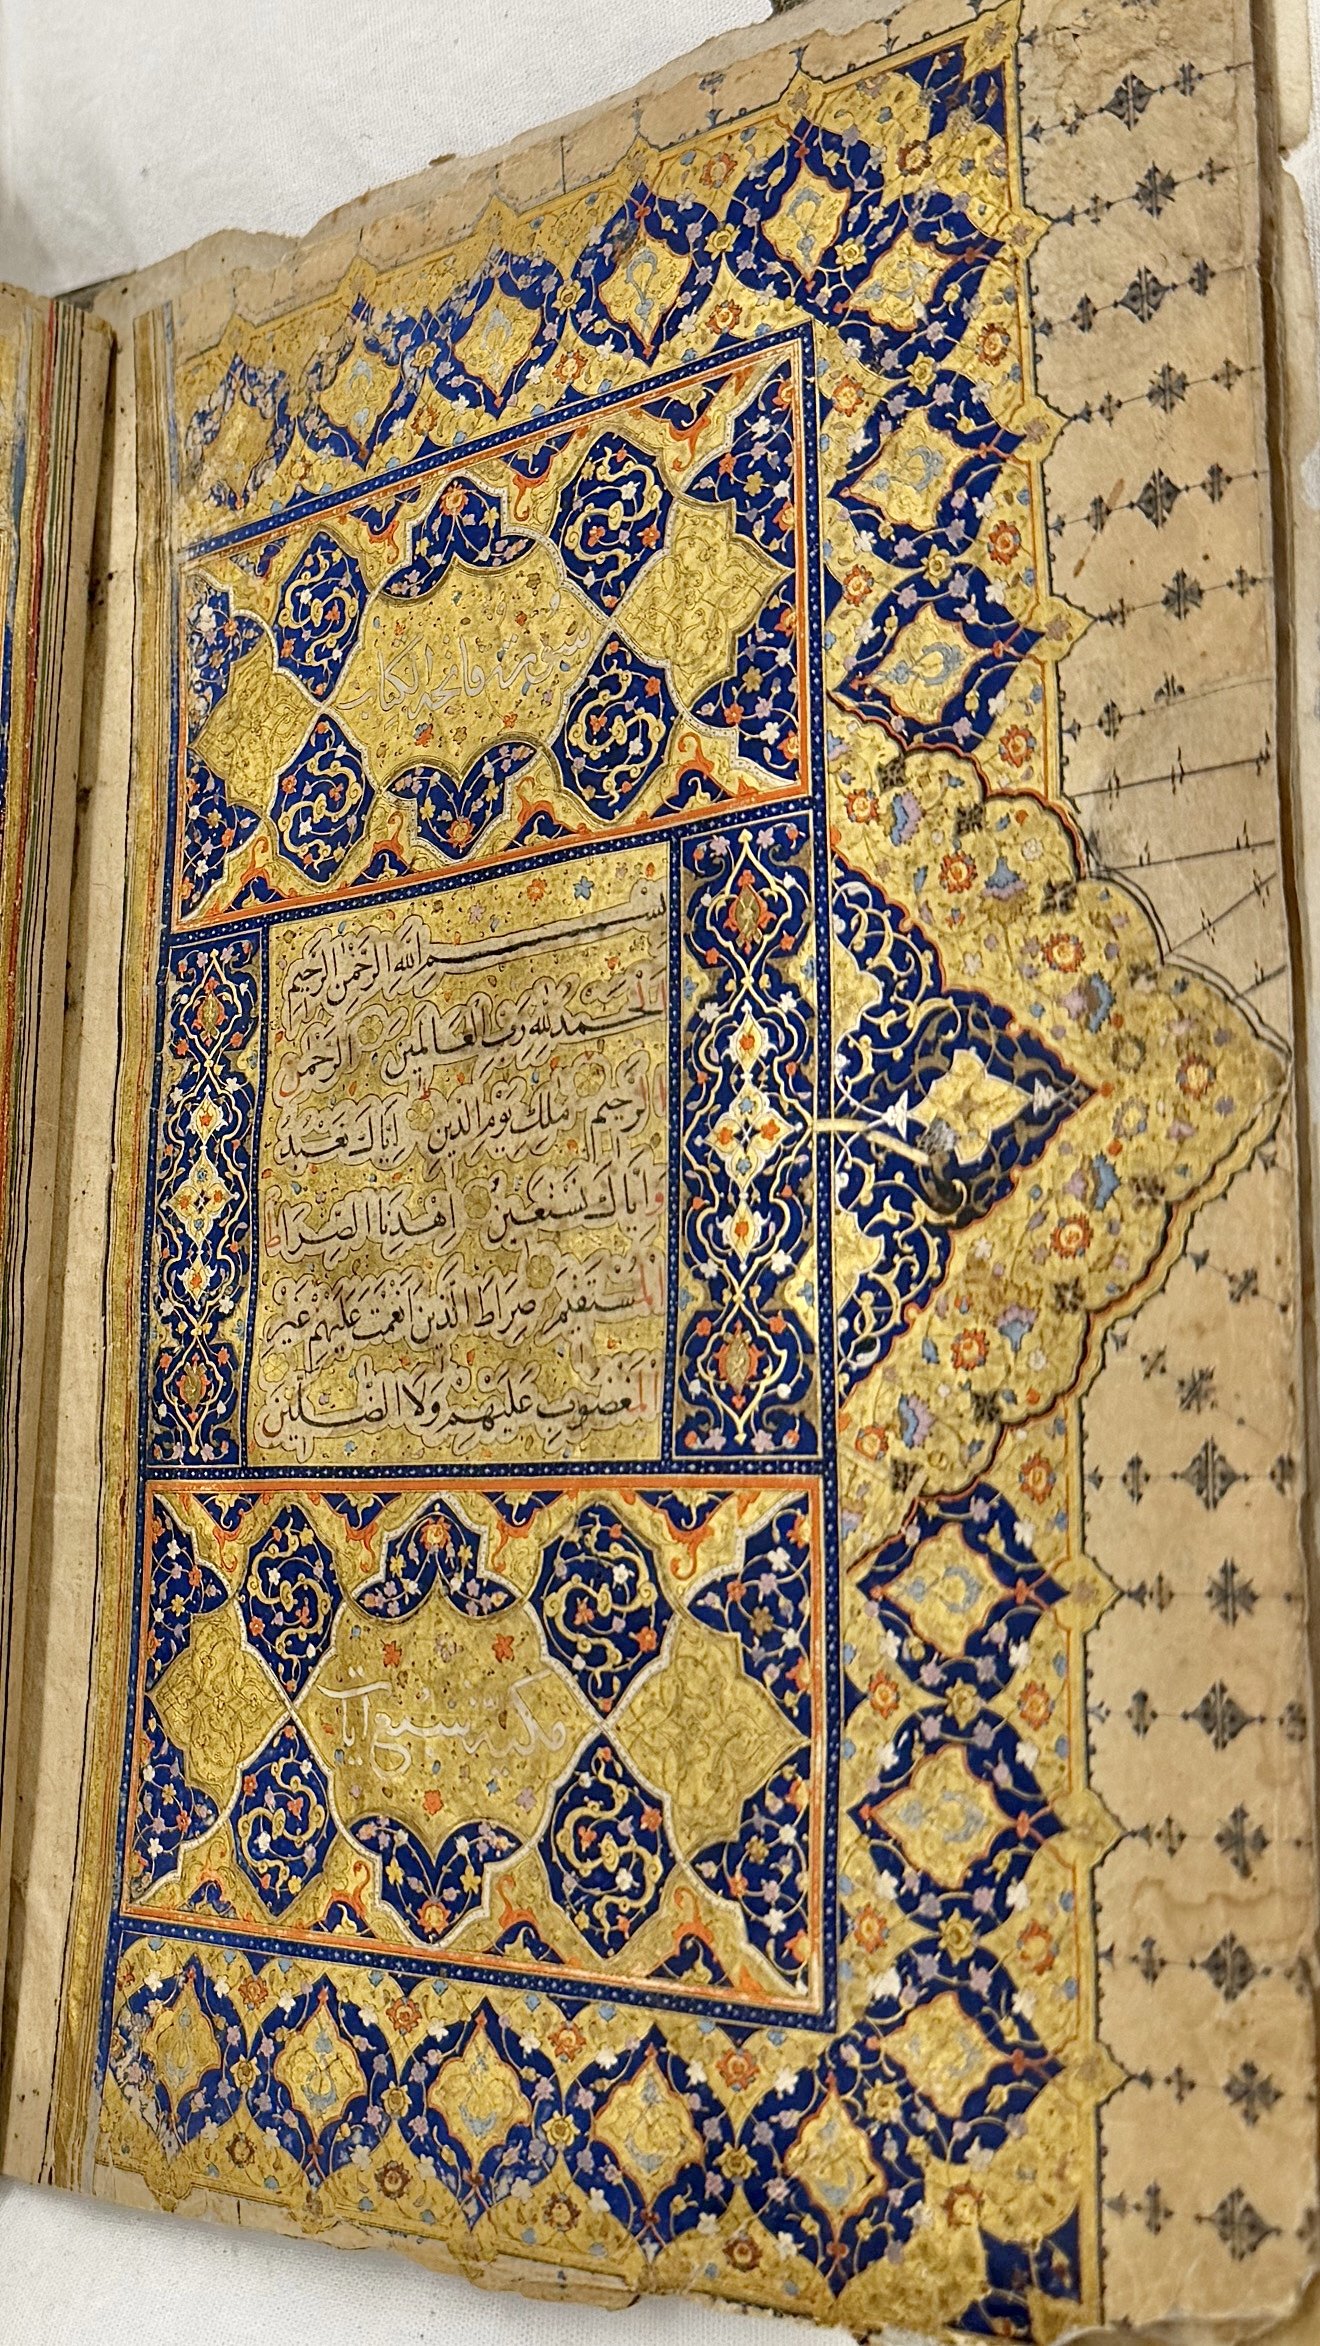 سورة فاتحة الكتاب
بسم الله الرحمن الرحيم
الحمد لله رب العالمين الرحمن
الرحيم ملك يوم الدين اياك نعبد
واياك نستعين اهدنا الصراط
المستقيم صراط الذين انعمت عليهم غير
المغضوب عليهم ولا الضالين
مكية سبع آيات